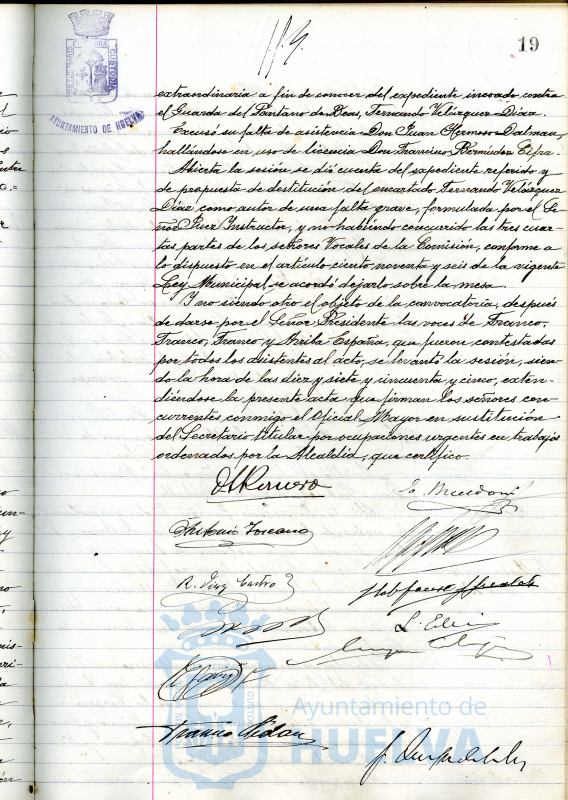 19
AYUNTAMIENTO DE HUELVA
extraordinaria a fin de conocer del expediente incoado contra
el Guarda del Pantano de Beas, Fernando Velázquez Díaz.
Excusó su falta de asistencia Don Juan Hermoso
hallándose en uso de licencia Don Francisco Bermúdez
Abierta la sesión se dió cuenta del expediente referido y
de propuesta de destitución del encartado Fernando Velázquez
Díaz como autor de una falta grave, formulada por el Se-
ñor Juez Instructor, y no habiendo concurrido las tres cuar-
tas partes de los señores Vocales de la Comisión, conforme a
lo dispuesto en el artículo ciento noventa y seis de la vigente
Ley Municipal se acordó dejarlo sobre la mesa.
Y no siendo otro el objeto de la convocatoria, después
de darse por el Señor Presidente las voces de Franco,
Franco, Franco y Arriba España, que fueron contestadas
por todos los asistentes al acto, se levantó la sesión, sien-
do la hora de las diez y siete y cincuenta y cinco, exten-
diéndose la presente acta que firman los señores con-
currentes conmigo el Oficial Mayor en sustitución
del Secretario titular por ocupaciones urgentes en trabajos
ordenados por la Alcaldía, que certifico.
Antonio Toscano
R. Díaz Castro
Ayuntamiento de
HUELVA